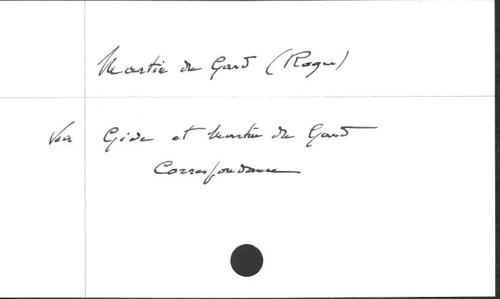 Martin du Gard (Roger)
Voir Gide et Martin du Gard
Correspondance